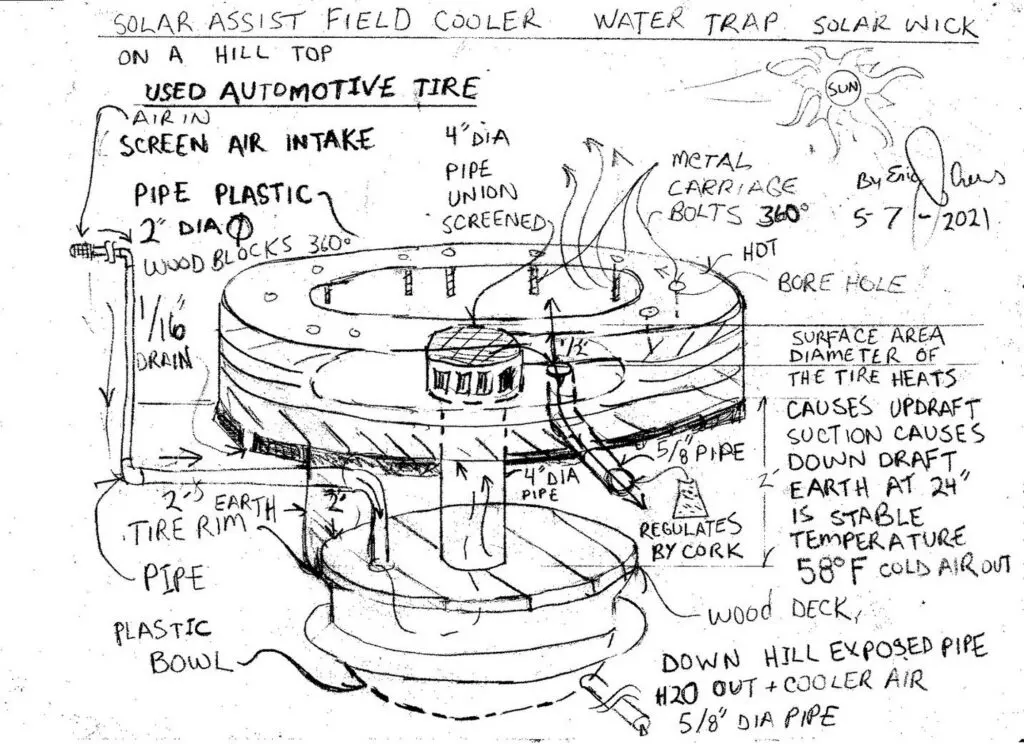 SOLAR ASSIST FIELD COOLER WATER TRAP SOLAR WICK
ON A HILL TOP
USED AUTOMOTIVE TIRE
AIR IN
SCREEN AIR INTAKE
PIPE PLASTIC
2" DIA
WOOD BLOCKS 360°
1/16"
DRAIN
4" DIA
PIPE
UNION
SCREENED
METAL
CARRIAGE
BOLTS 360°
SUN
By Eric
5-7-2021
HOT
BORE HOLE
SURFACE AREA
DIAMETER OF
THE TIRE HEATS
CAUSES UPDRAFT
SUCTION CAUSES
DOWN DRAFT
EARTH AT 24"
IS STABLE
TEMPERATURE
58°F COLD AIR OUT
1/2
5/8" PIPE
4" DIA
PIPE
2'
REGULATES
BY CORK
EARTH
2'
TIRE RIM
PIPE
PLASTIC
BOWL
WOOD DECK
DOWN HILL EXPOSED PIPE
H2O OUT + COOLER AIR
5/8" DIA PIPE